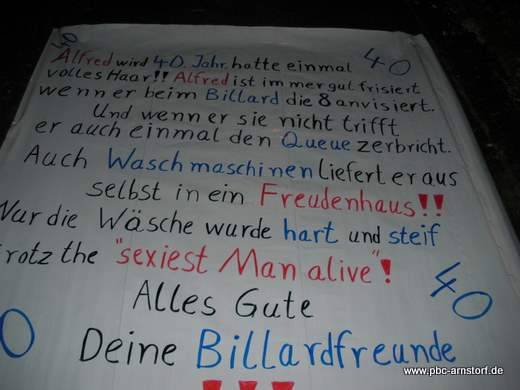 40
40
Alfred wird 40. Jahr. hatte einmal
volles Haar!! Alfred ist immer gut frisiert
wenn er beim Billard die 8 anvisiert.
Und wenn er sie nicht trifft
er auch einmal den Queue zerbricht.
Auch Waschmaschinen liefert er aus
selbst in ein Freudenhaus!!
Nur die Wäsche wurde hart und steif
trotz the "sexiest Man alive"!
40
Alles Gute
0
Deine Billardfreunde
!!!
www.pbc-arnstorf.de